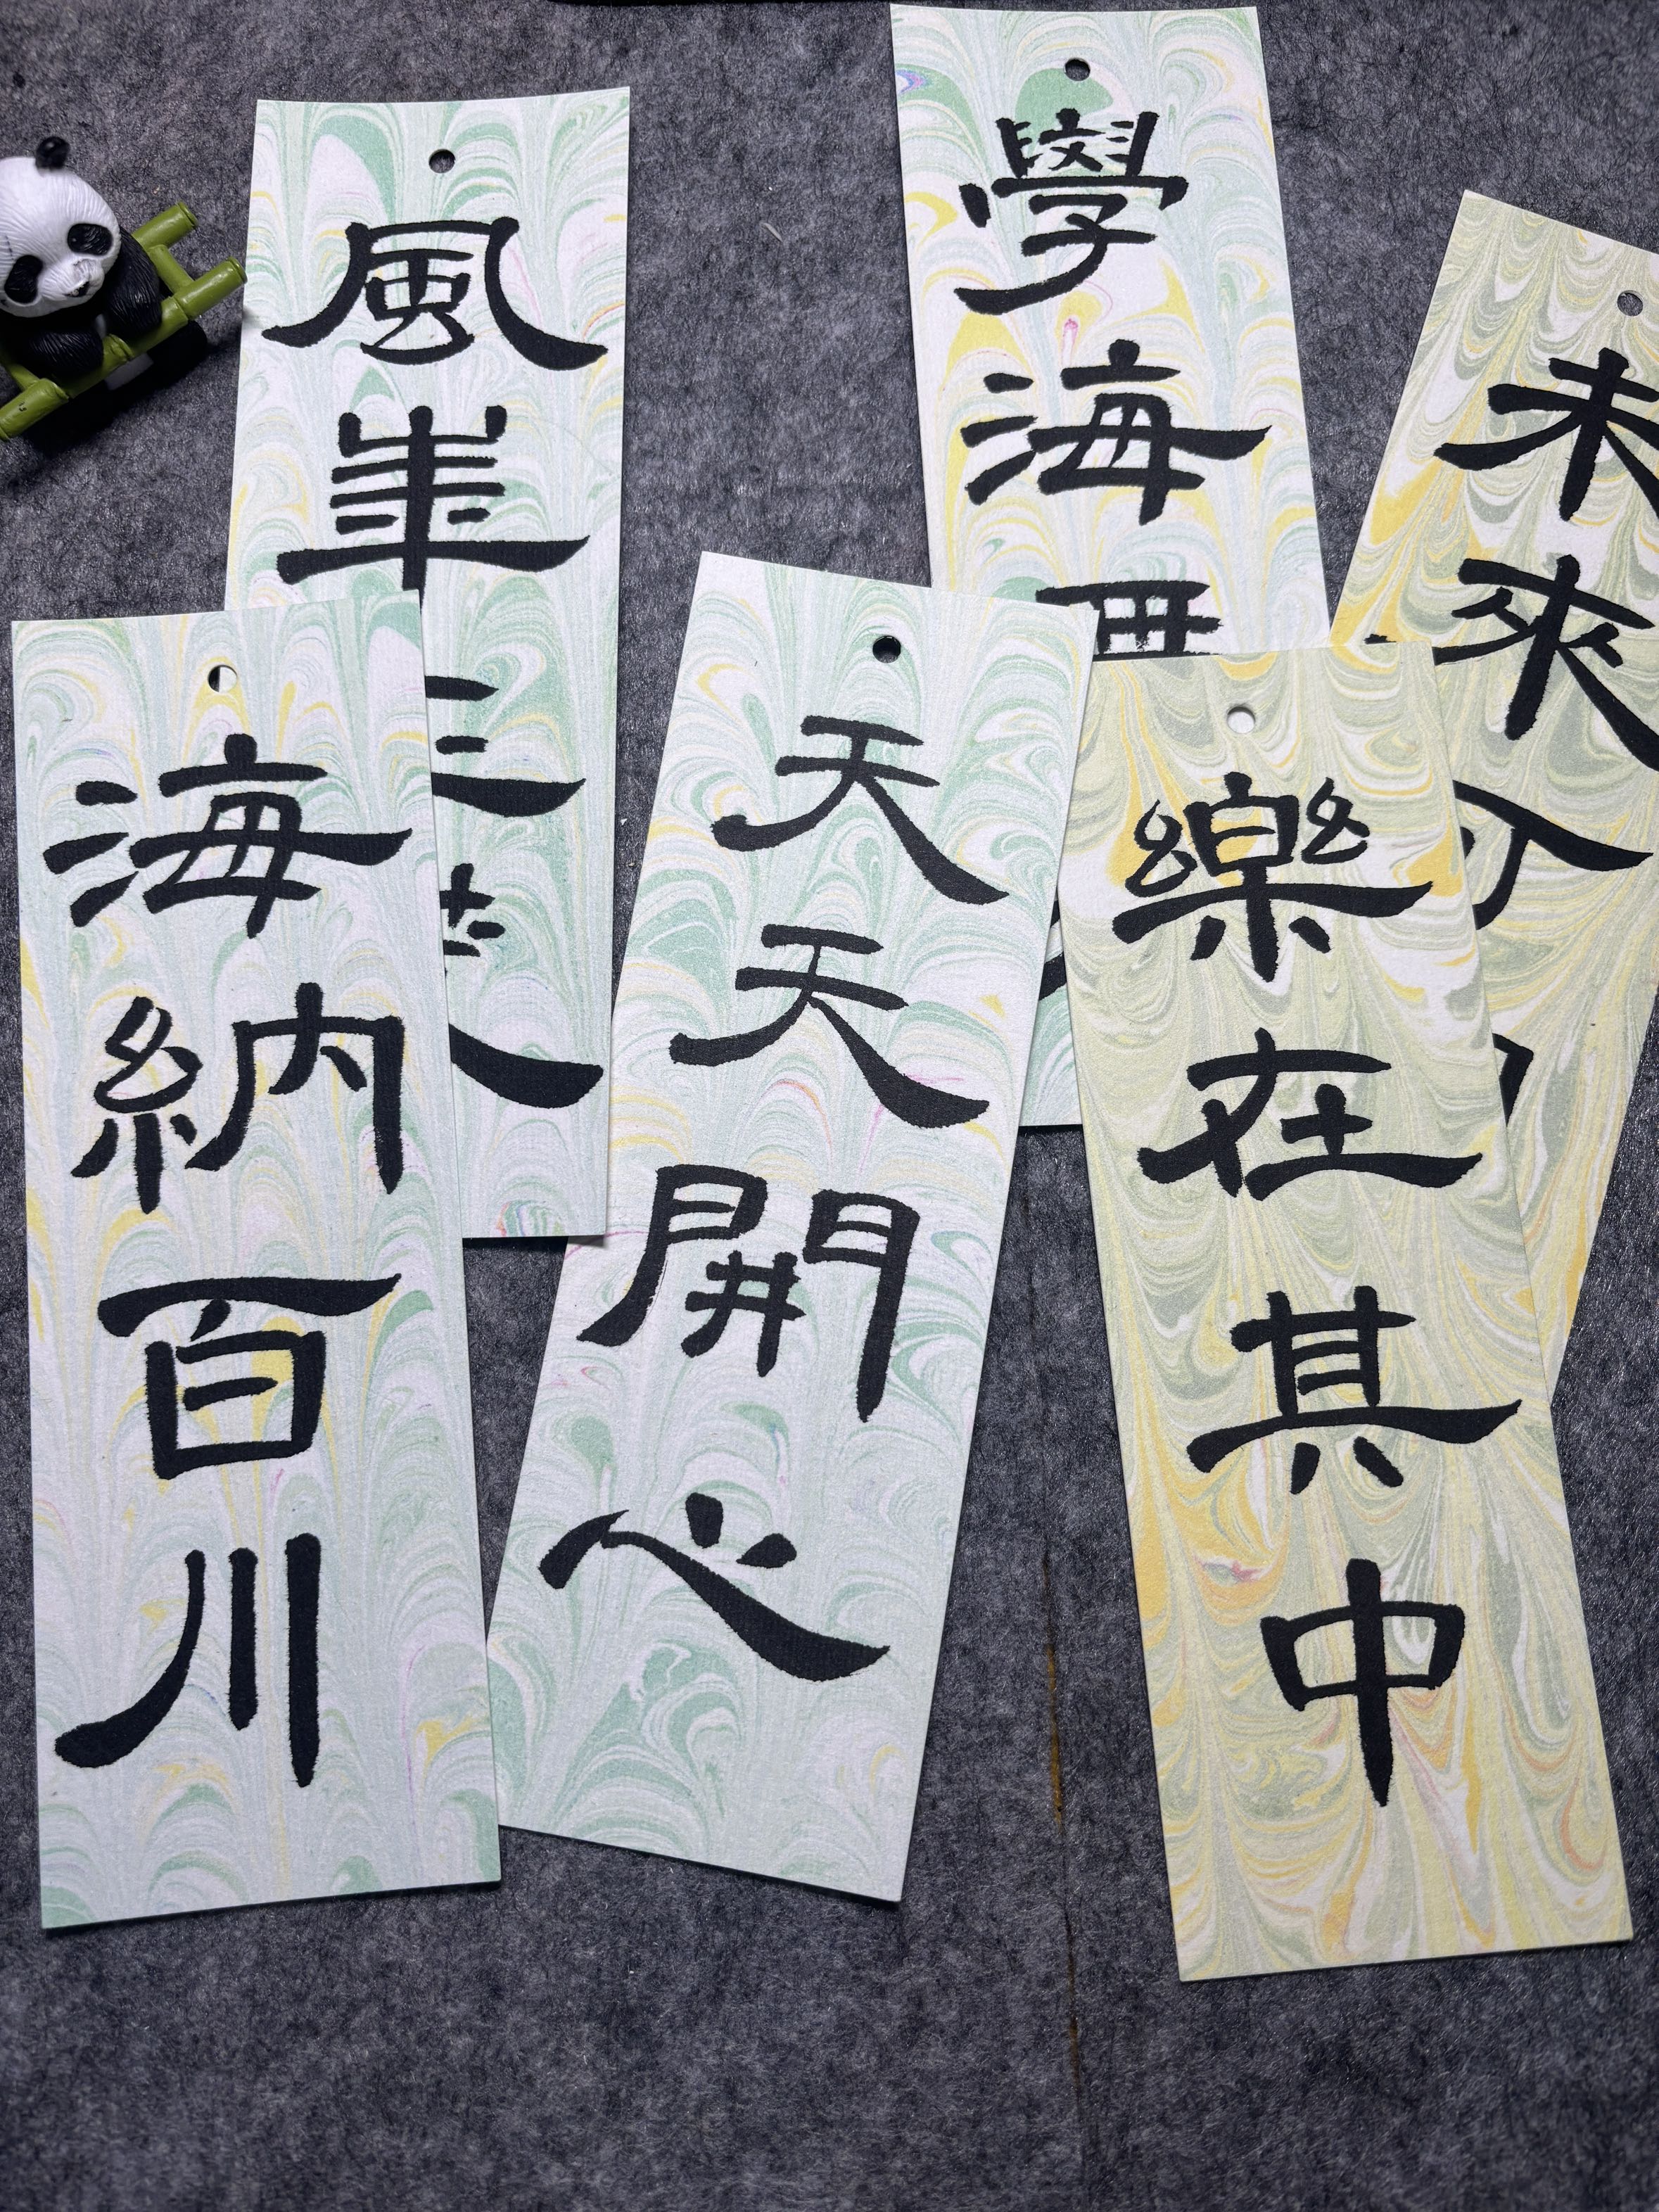 風華
學海
未來
海納百川
天天開心
樂在其中